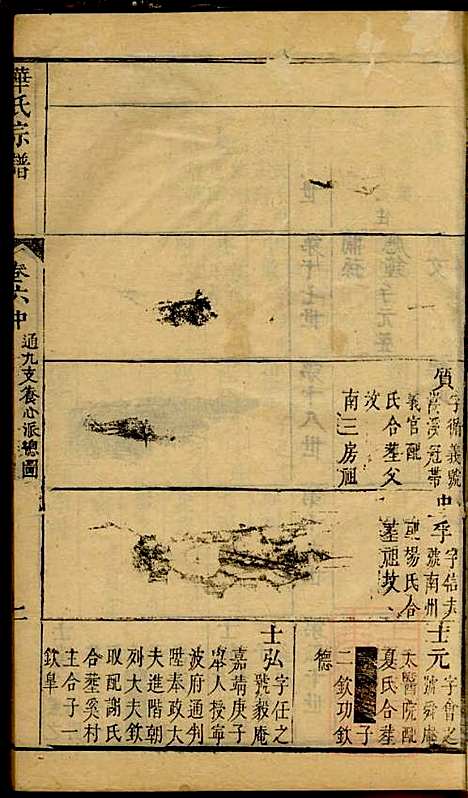 華氏宗譜
卷六中
通九支養心派總圖
二
質
字循義號
溪冠帶
義官配
氏合葬父
汶
南三房祖
中孚
字信夫
號南州
配楊氏合
葬祖坟
士元
字會之
號舜庵
太醫院配
夏氏合葬
子
二欽功欽
德
士弘
字任之
號毅庵
嘉靖庚子
舉人授寧
波府通判
陞奉政大
夫進階朝
列大夫欽
取配謝氏
合葬奚村
主合子一
欽皐